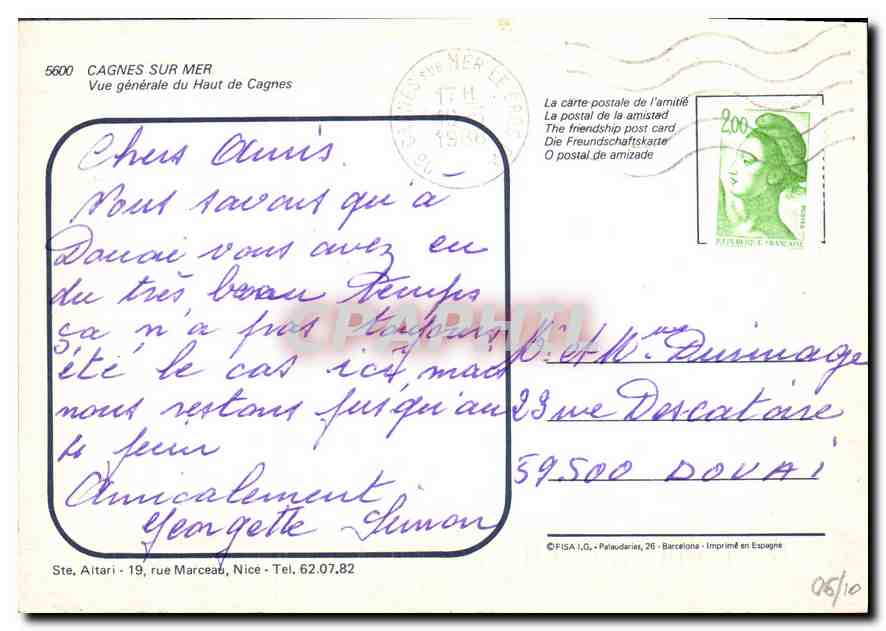 5600 CAGNES SUR MER
Vue générale du Haut de Cagnes
CAGNES SUR MER LE CROS
17 H
1986
06
La carte postale de l'amitié
La postal de la amistad
The friendship post card
Die Freundschaftskarte
O postal de amizade
2,00
POSTES
REPUBLIQUE FRANÇAISE
Chers Amis.
Nous savons qu'à
Douai vous avez eu
du très beau temps
ça n'a pas toujours
été le cas ici mais
nous restons jusqu'au
4 juin
Amicalement
Georgette Simon
Mr et Mme Durinage
23 rue Descatoire
59.500 DOUAI
CPAPHIL
©FISA I.G. - Palaudarias, 26 - Barcelona - Imprimé en Espagne
Ste. Altari - 19, rue Marceau, Nice - Tel. 62.07.82
06/10